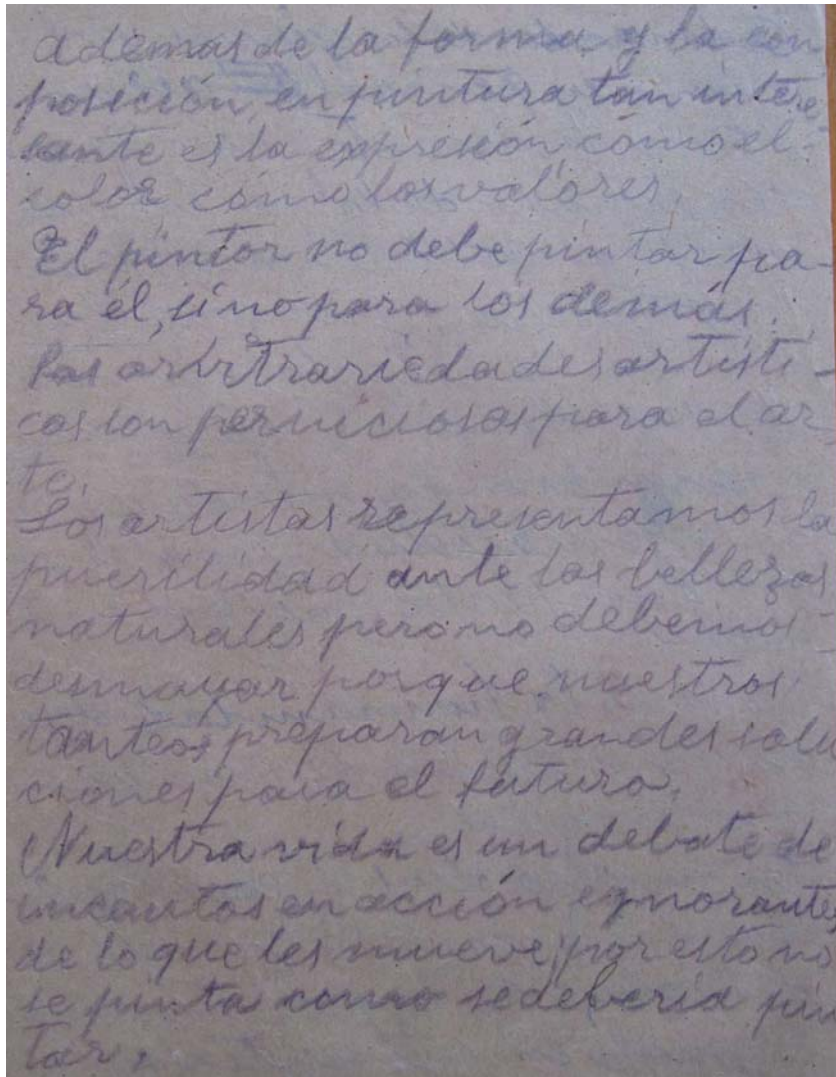 además de la forma y la con
posición, en pintura tan intere
sante es la expresión cómo el
color cómo los valores.
El pintor no debe pintar pa-
ra él, sino para los demás.
Las arbitrariedades artísti-
cas son perniciosas para el ar
te.
Los artistas representamos la
puerilidad ante las bellezas
naturales pero no debemos
desmayar porque nuestros
tanteos preparan grandes solu
ciones para el futuro.
Nuestra vida es un debate de
incautos en acción ignorantes
de lo que les mueve; por esto no
se pinta como se debería pin
tar.